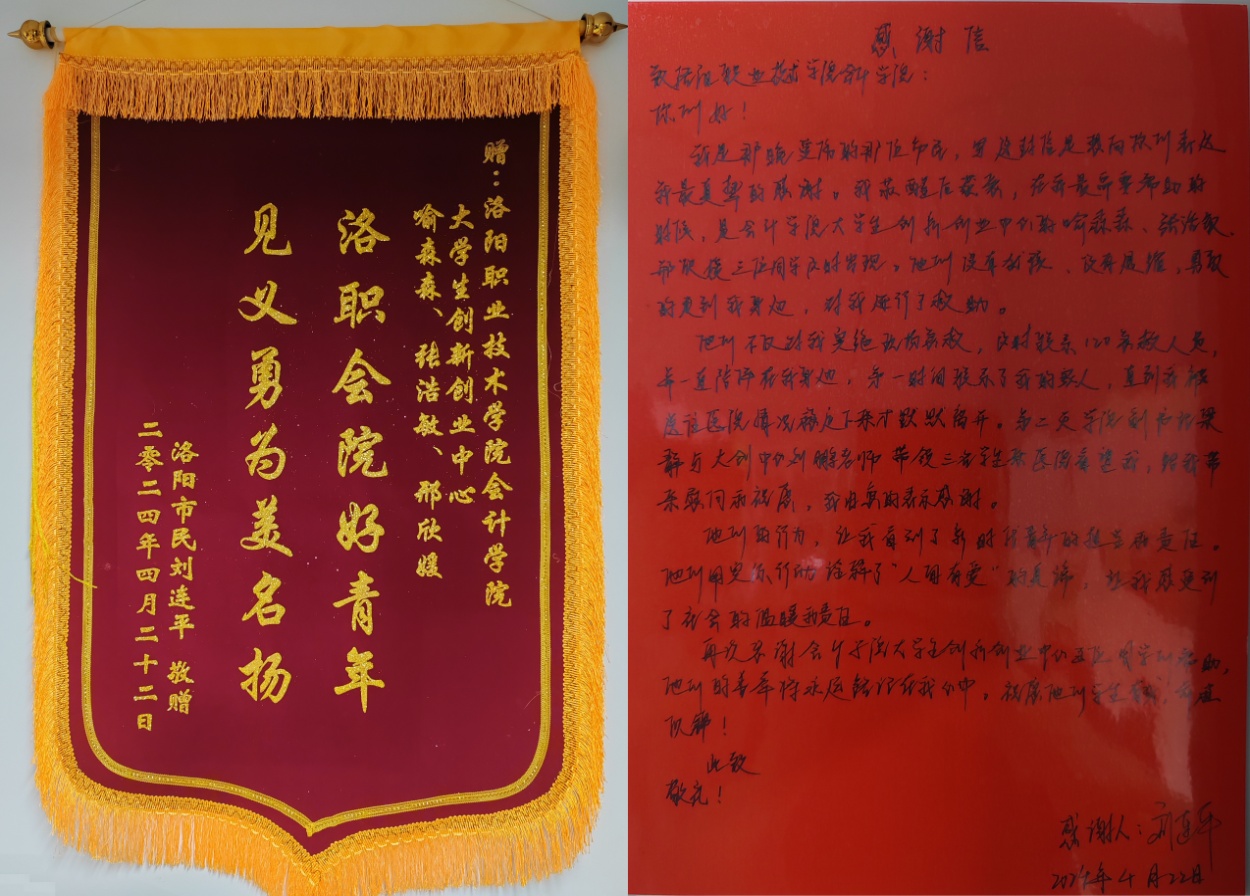 赠：洛阳职业技术学院会计学院
大学生创新创业中心
喻森森、张浩敏、邢欣媛
洛职会院好青年
见义勇为美名扬
洛阳市民刘连平 敬赠
二零二四年四月二十二日
感谢信
致洛阳职业技术学院会计学院：
你们好！
我是那晚受伤的那位市民，写这封信是想向你们表达
我最真挚的感谢。我苏醒后获悉，在我最需要帮助的
时候，是会计学院大学生创新创业中心的喻森森、张浩敏、
邢欣媛三位同学及时出现。他们没有犹豫、没有退缩，勇敢
的来到我身边，对我进行了救助。
他们不仅对我实施政急救，及时联系120急救人员，
并一直陪伴在我身边，第一时间联系了我的家人，直到我被
送往医院情况稳定下来才默默离开。第二天学院副书记梁
静与大创中心刘鹏老师带领三名学生来医院看望我，给我带
来慰问和祝愿，我由衷的表示感谢。
他们的行为，让我看到了新时代青年的担当和责任。
他们用实际行动诠释了“人间有爱”的真谛，让我感受到
了社会的温暖和责任。
再次感谢会计学院大学生创新创业中心三位同学们帮助，
他们的善举将永远铭记在我心中。祝愿他们学生
！
此致
敬礼！
感谢人：刘连平
2024年4月22日